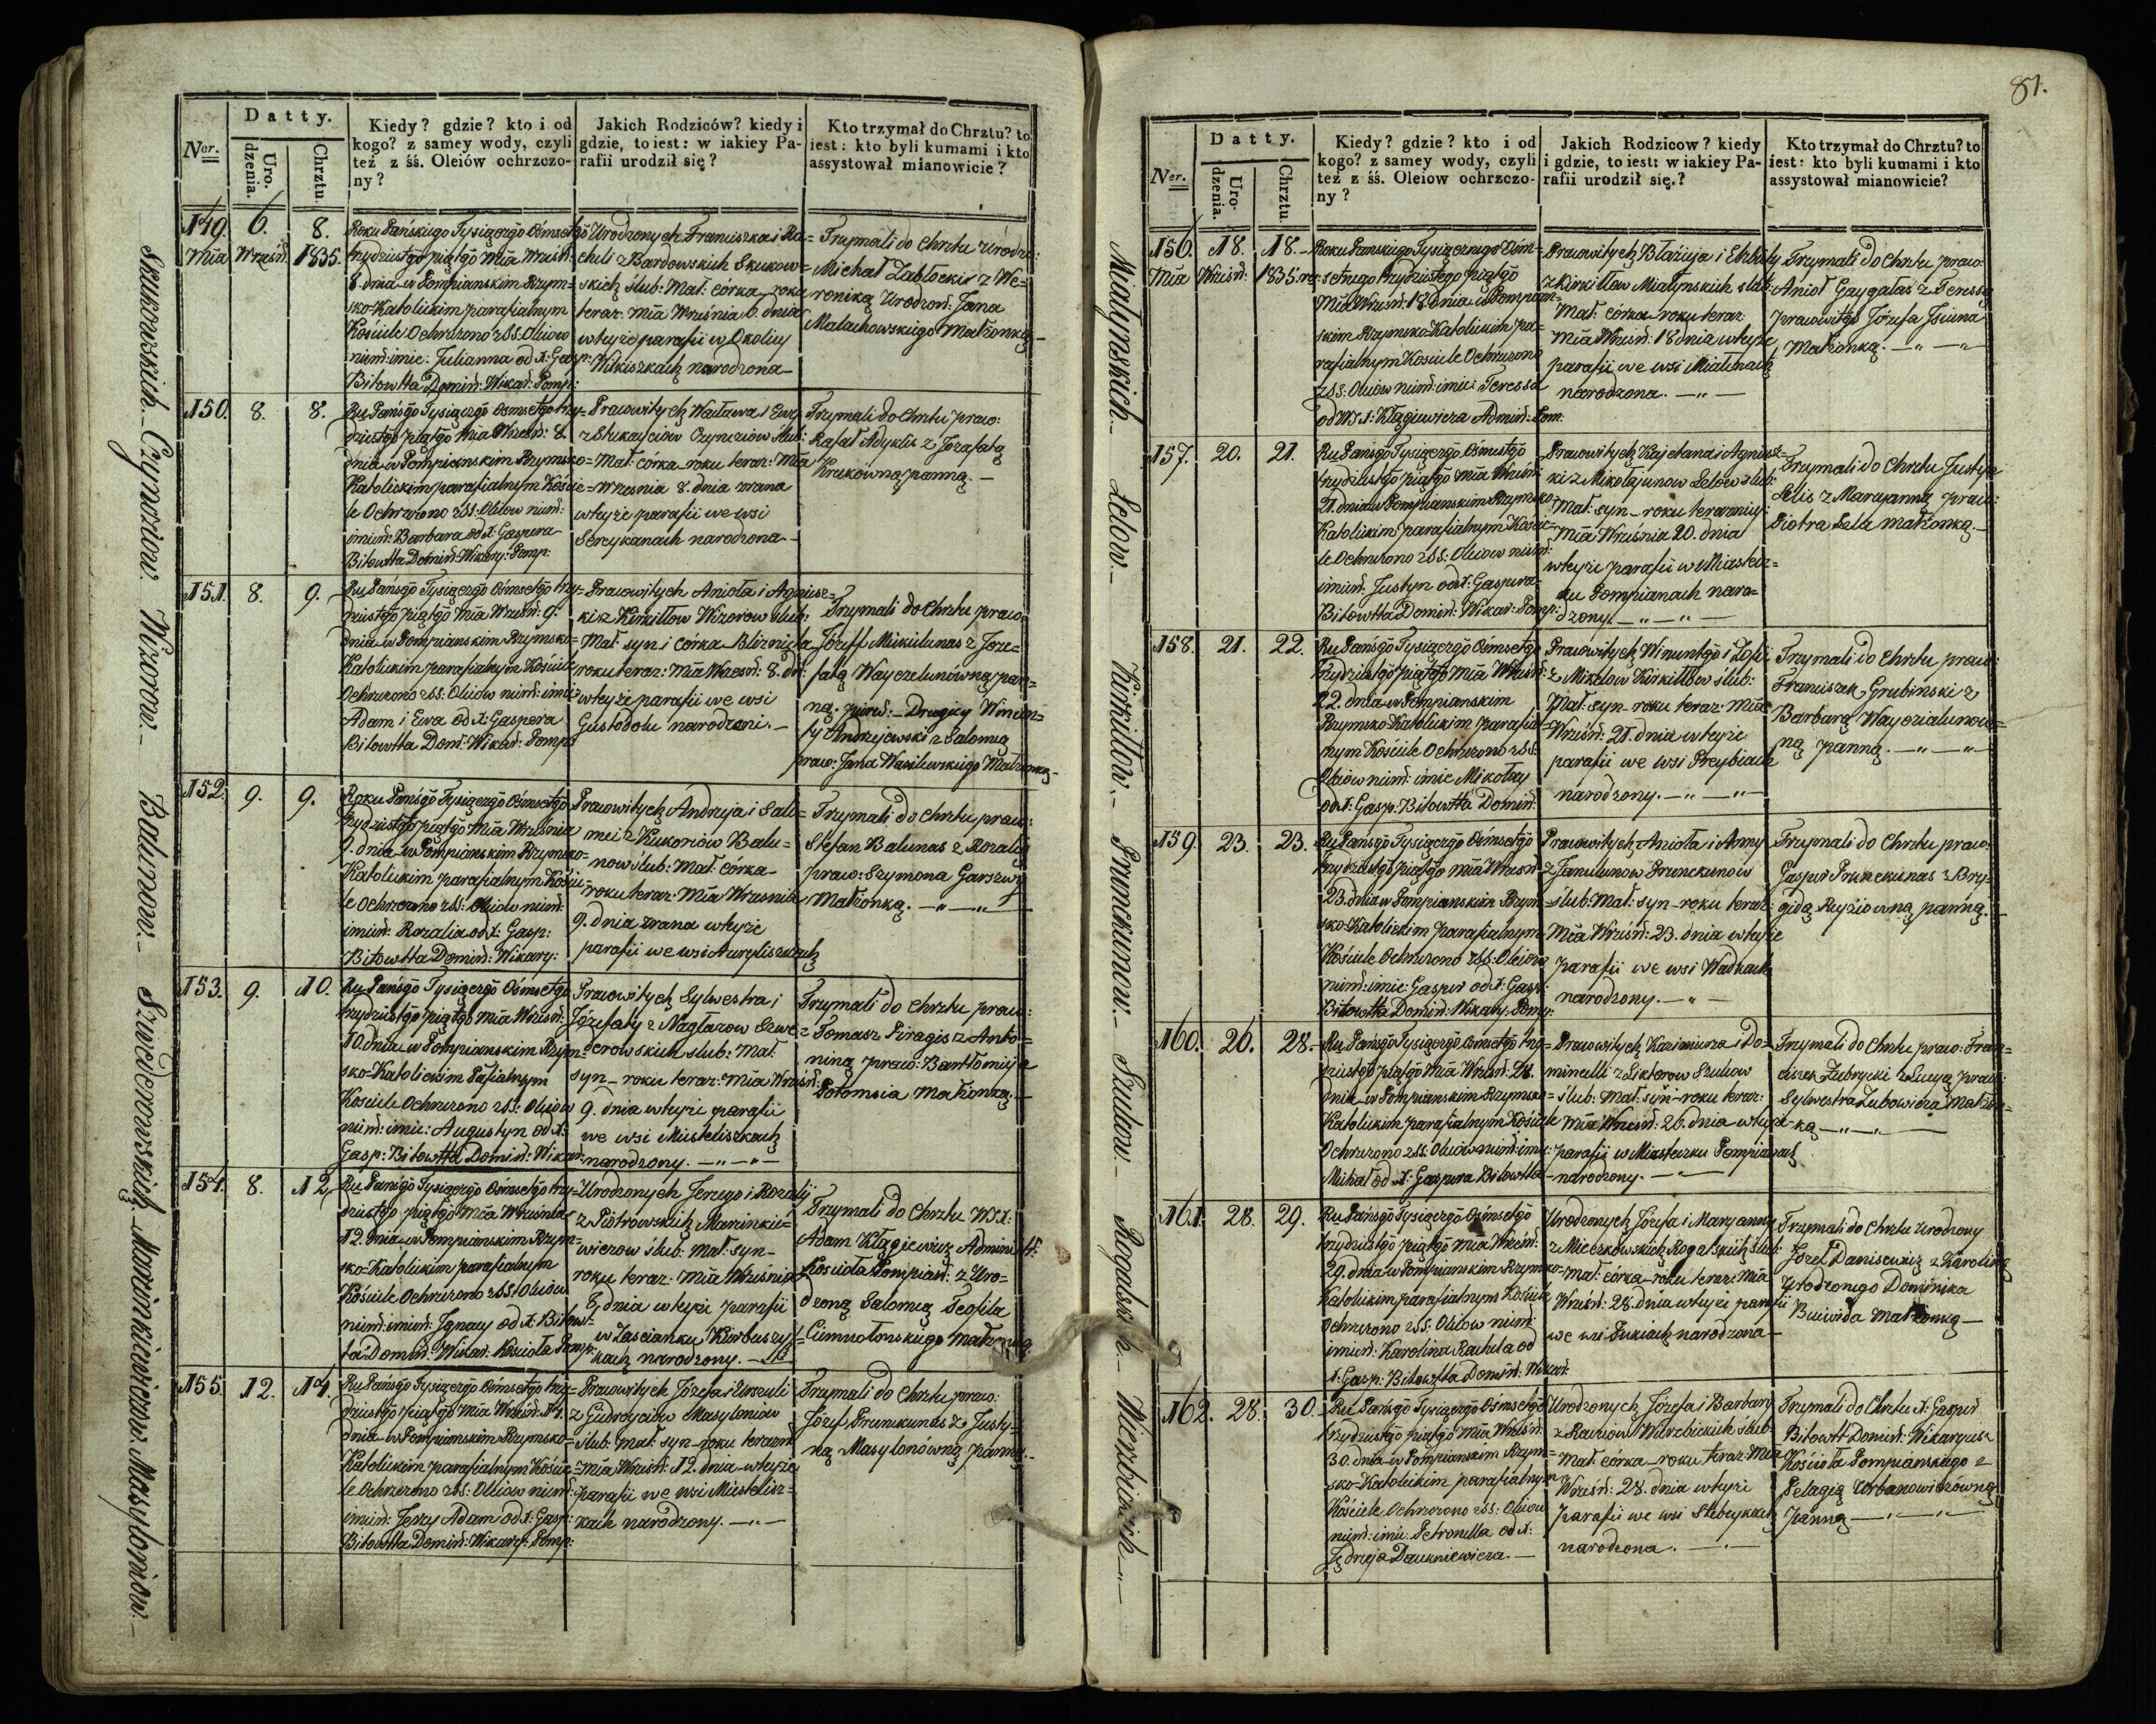 Skukowskich. Czynciow. Wizorow. Balunow. Szwederowskich. Marcinkiewiczow. Masyloniow.
Ner.
Datty.
Uro-
dzenia.
Chrztu
Kiedy? gdzie? kto i od
kogo? z samey wody, czyli
też z śś. Oleiów ochrzczo-
ny?
Jakich Rodziców? kiedy i
gdzie, to iest: w iakiey Pa-
rafii urodził się?
Kto trzymał do Chrztu? to
iest: kto byli kumami i kto
assystował mianowicie?
149. Mia
6. Wrześń.
8. 1835.
Roku Pańskiego Tysiączgo Ośmsetgo
trzydziestgo piątgo Mia Wrześ:
8 dnia w Pompianskim Rzym=
sko-Katolickim parafialnym
Kościele Ochrzczono z SS. Oleiow
nim: imie: Julianna od X: Gasp:
Bitowtta Domin: Wikar: Pomp:
Urodzonych Franciszka i Ra=
cheli z Bardowskich Skukow=
skich ślub: Mał: córka roku
teraz: Mia Września 6. dnia
w teyże parafii w Okolicy
Wilkiszkach narodzona
Trzymali do Chrztu Urodz:
Michał Zabłockis z We=
roniką Urodzon: Jana
Malachowskiego Małżonką
150.
8.
8.
Ru Pańsgo Tysiączgo Ośmsetgo trzy=
dziestgo piątgo Mia Wrześń: 8.
dnia w Pompianskim Rzymsko=
Katolickim parafialnym Koście=
le Ochrzczono z SS: Oleiow nim:
imień: Barbara od X: Gaspera
Bitowtta Domin: Wikary: Pomp:
Pracowitych Wacława i Ewy
z Stukayciow Czynciow ślub:
Mał: córka roku teraz: Mia
Wrzesnia 8. dnia zrana
w teyże parafii we wsi
Sereykanach narodzona
Trzymali do Chrztu praco:
Rafał Adyklis z Jozafatą
Krukówną panną.
151.
8.
9.
Ru Pańsgo Tysiączgo Ośmsetgo trzy=
dziestgo piątgo Mia Wrześń: 9.
dnia w Pompianskim Rzymsko=
Katolickim parafialnym Kościele
Ochrzczono z SS: Oleiow nim: imie
Adam i Ewa od X: Gaspera
Bitowtta Dom: Wikar: Pomp:
Pracowitych Anioła i Agniesz=
ki z Kirkiłłow Wizorow ślub:
Mał: syn i córka Bliznięta
roku teraz: Mia Wrześń: 8. dn:
w teyże parafii we wsi
Gustodolu narodzeni.
Trzymali do Chrztu praco:
Józeff Mikielunas z Joze=
fatą Wayczelunówną pan=
ną. pierw: Drugiey Wincen=
ty Andrzejewski z Salomeą
praw: Jana Wasilewskiego Małżonką
152.
9.
9.
Roku Pańsgo Tysiączgo Ośmsetgo
trzydziestgo piątgo Mia Września
9. dnia w Pompianskim Rzymsko=
Katolickim parafialnym Koście=
le Ochrzczono z SS: Oleiow nim:
imień: Rozalia od X: Gasp:
Bitowtta Domin: Wikary:
Pracowitych Andrzeja i Salo=
mei z Kukoriów Balu=
now ślub: Mał: córka
roku teraz: Mia Wrzesnia
9. dnia zrana w teyże
parafii we wsi Auryliszkach
Trzymali do Chrztu praco:
Stefan Balunas z Rozalią
praw: Szymona Garszwy
Małżonką.
153.
9.
10.
Ru Pańsgo Tysiączgo Ośmsetgo
trzydziestgo piątgo Mia Wrześń:
10. dnia w Pompianskim Rzym=
sko-Katolickim Pafialnym
Kościele Ochrzczono z SS: Oleiow
nim: imie: Augustyn od X:
Gasp: Bitowtta Domin: Wikar:
Pracowitych Sylwestra i
Józefaty z Nagłazow Szwe=
derowskich ślub: Mał:
syn roku teraz: Mia Wrześń:
9. dnia w teyże parafii
we wsi Misteliszkach
narodzony.
Trzymali do Chrztu praw:
Tomasz Piragis z Anto=
niną praw: Bartłomieja
Połomsia Małżonką.
154.
8.
12.
Ru Pańsgo Tysiączgo Ośmsetgo trzy=
dziestgo piątgo Mia Września
12. dnia w Pompianskim Rzym=
sko-Katolickim parafialnym
Kościele Ochrzczono z SS Oleiow
nim: imień: Ignacy od X: Bitow=
ta Domin: Wikar: Kościoła Pomp:
Urodzonych Jerzego i Rozalij
z Piotrowskich Marcinkie=
wiczow ślub: Mał: syn
roku teraz: Mia Września
8. dnia w teyże parafii
w Zascianku Kurbuszysz=
kach narodzony.
Trzymali do Chrztu WX:
Adam Kłągiewicz Administ:
Kościoła Pompian: z Uro=
dzoną Salomeą Teofila
Ciemnołonskiego małżonką
155.
12.
14.
Ru Pańsgo Tysiączgo Ośmsetgo trzy=
dziestgo piątgo Mia Wrześń: 14.
dnia w Pompianskim Rzymsko=
Katolickim parafialnym Koście=
le Ochrzczono z SS: Oleiow nim:
imień: Jerzy Adam od X: Gasp:
Bitowtta Domin: Wikary: Pomp:
Pracowitych Józefa i Urszuli
z Giedroyciow Masyloniow
ślub: mał: syn roku terazn:
Mia Wrześń: 12. dnia w teyże
parafii we wsi Mistelisz=
kach narodzony.
Trzymali do Chrztu praco:
Józef Prunckunas z Justy=
ną Masylonówną panną.
81.
Mialynskich. Lelow. Kirkiłłow. Prunckunow. Szulow. Rogalskich. Wierzbickich
Ner.
Datty.
Uro-
dzenia.
Chrztu
Kiedy? gdzie? kto i od
kogo? z samey wody, czyli
też z śś. Oleiow ochrzczo-
ny?
Jakich Rodzicow? kiedy
i gdzie, to iest: w iakiey Pa-
rafii urodził się.?
Kto trzymał do Chrztu? to
iest: kto byli kumami i kto
assystował mianowicie?
156. Mia
18. Wrześń:
18. 1835. ro:
Roku Panskiego Tysiącznego Ośm=
setnego trzydziestego piątgo
Mia Wrześń: 18 dnia w Pompian=
skim Rzymsko-Katolickim pa=
rafialnym Kościele Ochrzczono
z SS: Oleiów nim: imie: Teressa
od WX: Kłągiewicza Admin: Pom:
Pracowitych Błażeja i Elżbiety
z Kirkiłłow Mialynskich ślub:
Mał: córka roku teraz:
Mia Wrześń: 18 dnia w teyże
parafii we wsi Mialunach
narodzona.
Trzymali do Chrztu praco:
Anioł Gaygalas z Teressą
pracowitgo Józefa Jsiuna
Małżonką.
157.
20.
21.
Ru Pańsgo Tysiączgo Ośmsetgo
trzydziestgo piątgo Mia Wrześń:
21. dnia w Pompianskim Rzymsko=
Katolickim parafialnym Koście=
le Ochrzczono z SS: Oleiow nim:
imień: Justyn od X: Gaspera
Bitowtta Domin: Wikar: Pomp:
Pracowitych Kajetana i Agniesz=
ki z Mikołajunow Lelów ślub:
Mał: syn roku terazniey:
Mia Września 20. dnia
w teyże parafii w Miastecz=
ku Pompianach naro=
dzony.
Trzymali do Chrztu Justyn
Lelis z Maryanną praw:
Piotra Lela małżonką.
158.
21.
22.
Ru Pańsgo Tysiączgo Ośmsetgo
trzydziestgo piątgo Mia Wrześń:
22. dnia w Pompianskim
Rzymsko-Katolickim parafial=
nym Kościele Ochrzczono z SS:
Oleiow nim: imie Mikołay
od X: Gasp: Bitowtta Domin:
Pracowitych Wincentgo i Zofii
z Mikelow Kirkiłłow ślub:
Mał: syn roku teraz: Mia
Wrześń: 21. dnia w teyże
parafii we wsi Preybiach
narodzony.
Trzymali do Chrztu praw:
Franciszek Grubinski z
Barbarą Wayczialunow=
ną panną.
159.
23.
23.
Ru Pańsgo Tysiączgo Ośmsetgo
trzydziestgo piątgo Mia Wrześń
23. dnia w Pompianskim Rzym=
sko-Katolickim parafialnym
Kościele Ochrzczono z SS: Oleiow
nim: imie: Gasper od X: Gasp:
Bitowtta Domin: Wikary: Pomp:
Pracowitych Anioła i Anny
z Janulunow Prunckunow
ślub: Mał: syn roku teraz:
Mia Wrześń: 23. dnia w teyże
parafii we wsi Wadkach
narodzony.
Trzymali do Chrztu praco:
Gasper Prunckunas z Bry=
gidą Ryziowną panną.
160.
26.
28.
Ru Pańsgo Tysiączgo Ośmsetgo trzy=
dziestgo piątgo Mia Wrześń: 28.
dnia w Pompianskim Rzymsko=
Katolickim parafialnym Kościele
Ochrzczono z SS: Oleiów nim: imie:
Michał od X: Gaspera Bitowtta
Pracowitych Kazimierza i Do=
minceli z Liktorow Szulow
ślub: Mał: syn roku teraz:
Mia Wrześń: 26. dnia w teyże
parafii w Miasteczku Pompianach
narodzony.
Trzymali do Chrztu praco: Fran=
ciszek Zubrycki z Łucyą praw:
Sylwestra Zubowicza Małżon=
ką
161.
28.
29.
Ru Pańsgo Tysiączgo Ośmsetgo
trzydziestgo piątgo Mia Wrześń:
29. dnia w Pompianskim Rzymsko=
Katolickim parafialnym Kościele
Ochrzczono z SS: Oleiow nim:
imień: Karolina Rachela od
X: Gasp: Bitowtta Domin: Wikar:
Urodzonych Józefa i Maryanny
z Mieczkowskich Rogalskich ślub:
Mał: córka roku teraz: Mia
Wrześń: 28. dnia w teyże parafii
we wsi Pukiach narodzona
Trzymali do Chrztu Urodzony
Józef Daniscewicz z Karoliną
Urodzonego Dominika
Buiwida Małżonką
162.
28.
30.
Ru Pańsgo Tysiączgo Ośmsetgo
trzydziestgo piątgo Mia Wrześń:
30. dnia w Pompianskim Rzym=
sko-Katolickim parafialnym
Kościele Ochrzczono z SS: Oleiow
nim: imie: Petronella od X:
Jędrzeja Daukniewicza.
Urodzonych Józefa i Barbary
z Rawiow Wierzbickich ślub:
Mał: córka roku teraz: Mia
Wrześń: 28. dnia w teyże
parafii we wsi Stebeykach
narodzona.
Trzymali do Chrztu X: Gasper
Bitowtt Domin: Wikaryusz
Kościoła Pompianskiego z
Pelagią Urbanowiczówną
Panną